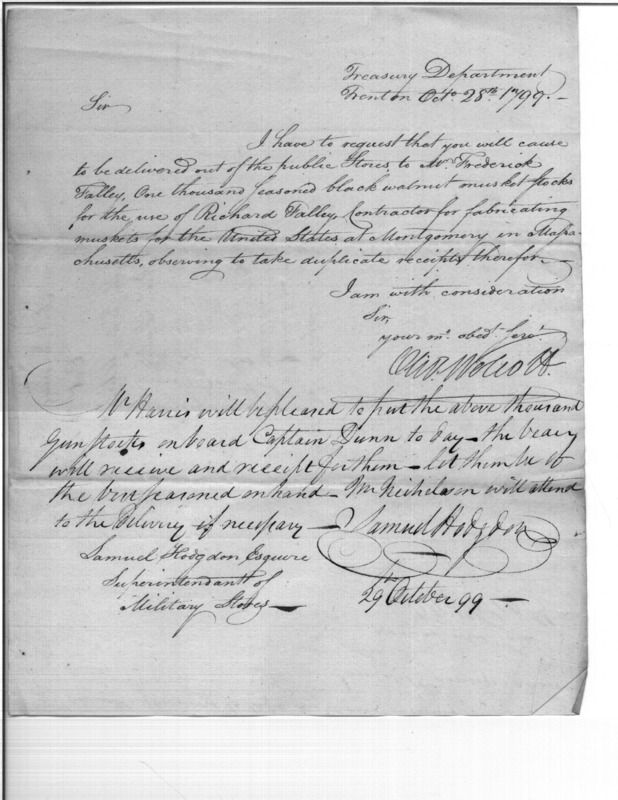 Treasury Department
Trenton Octo. 28th. 1799.—
Sir
I have to request that you will cause
to be delivered out of the public Stores, to Mr. Frederick
Falley, One thousand seasoned black walnut musket stocks
for the use of Richard Falley, Contractor for fabricating
muskets for the United States at Montgomery in Massa-
chusetts, observing to take duplicate receipts therefor.—
I am with consideration
Sir,
your mo. obed. Serv.
Oliv. Wolcott.
Mr Harris will be pleased to put the above thousand
Gun stocks on board Captain Dunn to day — the bearer
will receive and receipt for them — let them be of
the best seasoned on hand — Mr Nicholson will attend
to the delivery if necessary —
Samuel Hodgdon
Samuel Hodgdon Esquire
Superintendant of
Military Stores —
29th October 99 —